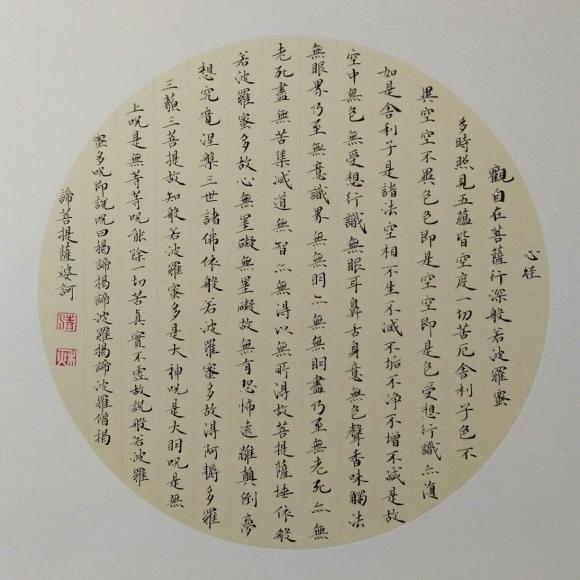 心经
觀自在菩薩行深般若波羅蜜
多時照見五蘊皆空度一切苦厄舍利子色不
異空空不異色色即是空空即是色受想行識亦復
如是舍利子是諸法空相不生不滅不垢不淨不增不減是故
空中無色無受想行識無眼耳鼻舌身意無色聲香味觸法
無眼界乃至無意識界無無明亦無無明盡乃至無老死亦無
老死盡無苦集滅道無智亦無得以無所得故菩提薩埵依般
若波羅蜜多故心無罣礙無罣礙故無有恐怖遠離顛倒夢
想究竟涅槃三世諸佛依般若波羅蜜多故得阿耨多羅
三藐三菩提故知般若波羅蜜多是大神呪是大明呪是無
上呪是無等等呪能除一切苦真實不虛故說般若波羅
蜜多呪即說呪曰揭諦揭諦波羅揭諦波羅僧揭
諦菩提薩婆訶